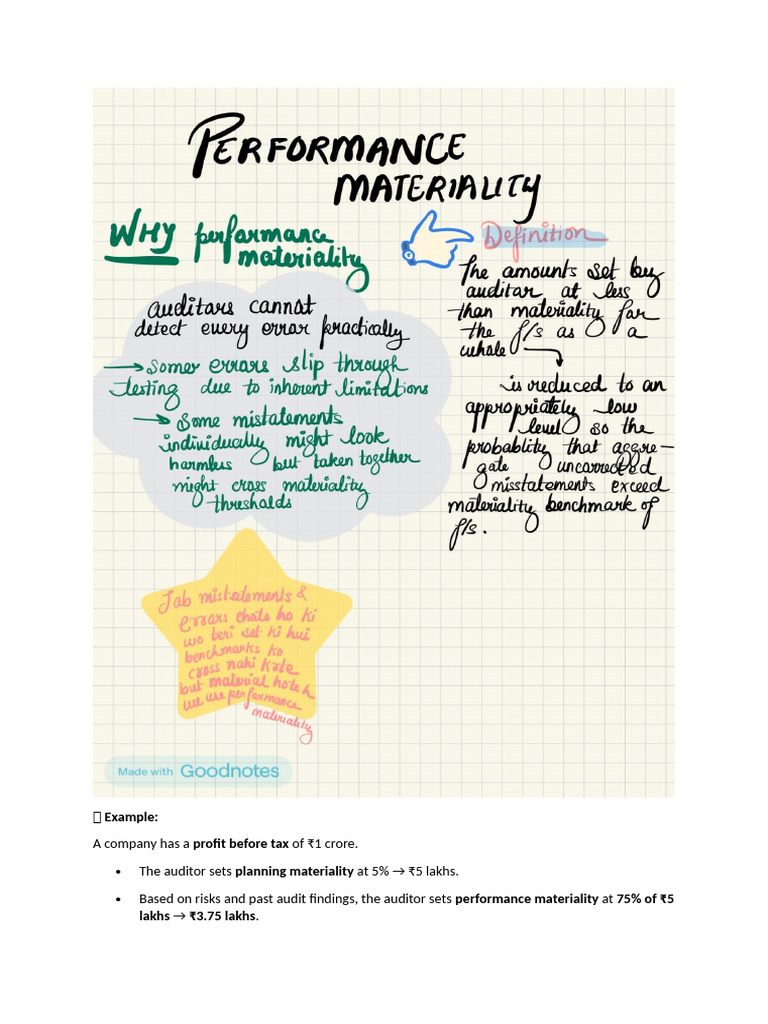 PERFORMANCE
MATERIALITY
WHY performance
materiality
auditors cannot
detect every error practically
→ Somer errors slip through
testing due to inherent limitations
→ Some mistatements
individually might look
harmless but taken together
might cross materiality
thresholds
Definition
The amounts set by
auditor at less
than materiality for
the f/s as a
whole
is reduced to an
appropriately low
level so the
probablity that aggre-
gate uncorrected
misstatements exceed
materiality benchmark of
f/s.
Jab mistatements &
errors chote ho ki
wo teri set ki hui
benchmarks ko
cross nahi krte
but material hote h
we use performance
materiality
Made with Goodnotes
Example:
A company has a profit before tax of ₹1 crore.
• The auditor sets planning materiality at 5% → ₹5 lakhs.
• Based on risks and past audit findings, the auditor sets performance materiality at 75% of ₹5
lakhs → ₹3.75 lakhs.